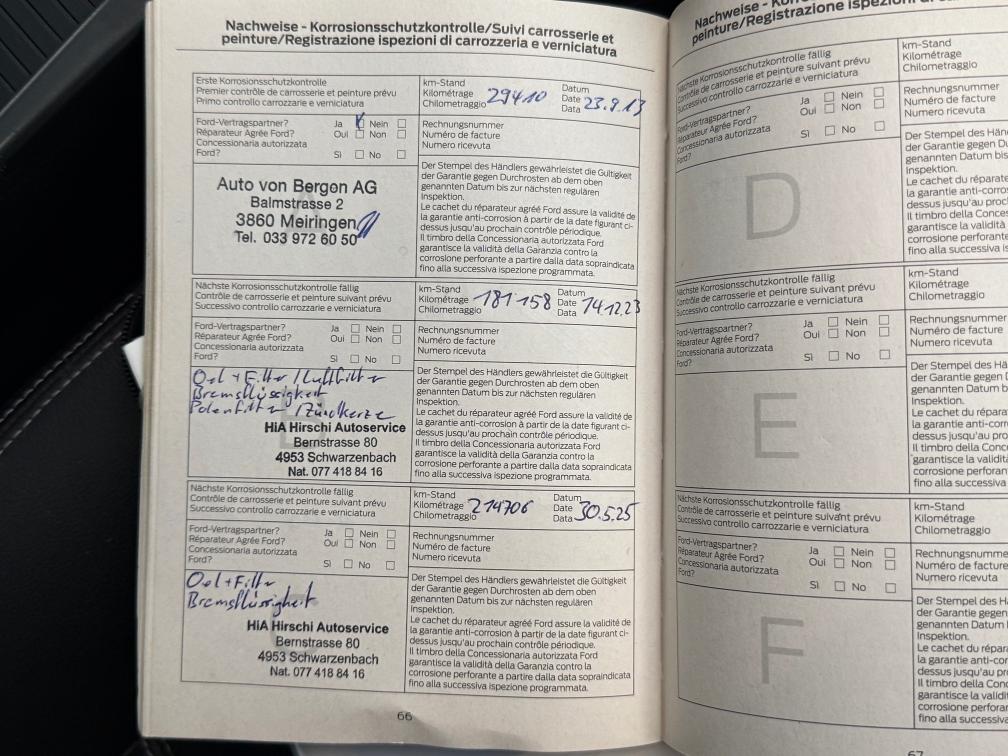 Nachweise - Korrosionsschutzkontrolle/Suivi carrosserie et
peinture/Registrazione ispezioni di carrozzeria e verniciatura
Erste Korrosionsschutzkontrolle
Premier contrôle de carrosserie et peinture prévu
Primo controllo carrozzarie e verniciatura
km-Stand
Kilométrage
Chilometraggio 29410
Datum
Date
Data 23.9.13
Ford-Vertragspartner?
Réparateur Agrée Ford?
Concessionaria autorizzata
Ford?
Ja Nein
Oui Non
Sì No
Rechnungsnummer
Numéro de facture
Numero ricevuta
Auto von Bergen AG
Balmstrasse 2
3860 Meiringen
Tel. 033 972 60 50
Der Stempel des Händlers gewährleistet die Gültigkeit
der Garantie gegen Durchrosten ab dem oben
genannten Datum bis zur nächsten regulären
Inspektion.
Le cachet du réparateur agréé Ford assure la validité de
la garantie anti-corrosion à partir de la date figurant ci-
dessus jusqu'au prochain contrôle périodique.
Il timbro della Concessionaria autorizzata Ford
garantisce la validità della Garanzia contro la
corrosione perforante a partire dalla data sopraindicata
fino alla successiva ispezione programmata.
Nächste Korrosionsschutzkontrolle fällig
Contrôle de carrosserie et peinture suivant prévu
Successivo controllo carrozzarie e verniciatura
km-Stand
Kilométrage
Chilometraggio 181158
Datum
Date
Data 14.12.23
Ford-Vertragspartner?
Réparateur Agrée Ford?
Concessionaria autorizzata
Ford?
Ja Nein
Oui Non
Sì No
Rechnungsnummer
Numéro de facture
Numero ricevuta
Oel + Filter / Luftfilter
Bremsflüssigkeit
Polenfilter / Zündkerze
HiA Hirschi Autoservice
Bernstrasse 80
4953 Schwarzenbach
Nat. 077 418 84 16
Der Stempel des Händlers gewährleistet die Gültigkeit
der Garantie gegen Durchrosten ab dem oben
genannten Datum bis zur nächsten regulären
Inspektion.
Le cachet du réparateur agréé Ford assure la validité de
la garantie anti-corrosion à partir de la date figurant ci-
dessus jusqu'au prochain contrôle périodique.
Il timbro della Concessionaria autorizzata Ford
garantisce la validità della Garanzia contro la
corrosione perforante a partire dalla data sopraindicata
fino alla successiva ispezione programmata.
Nächste Korrosionsschutzkontrolle fällig
Contrôle de carrosserie et peinture suivant prévu
Successivo controllo carrozzarie e verniciatura
km-Stand
Kilométrage
Chilometraggio 214706
Datum
Date
Data 30.5.25
Ford-Vertragspartner?
Réparateur Agrée Ford?
Concessionaria autorizzata
Ford?
Ja Nein
Oui Non
Sì No
Rechnungsnummer
Numéro de facture
Numero ricevuta
Oel + Filter
Bremsflüssigkeit
HiA Hirschi Autoservice
Bernstrasse 80
4953 Schwarzenbach
Nat. 077 418 84 16
Der Stempel des Händlers gewährleistet die Gültigkeit
der Garantie gegen Durchrosten ab dem oben
genannten Datum bis zur nächsten regulären
Inspektion.
Le cachet du réparateur agréé Ford assure la validité de
la garantie anti-corrosion à partir de la date figurant ci-
dessus jusqu'au prochain contrôle périodique.
Il timbro della Concessionaria autorizzata Ford
garantisce la validità della Garanzia contro la
corrosione perforante a partire dalla data sopraindicata
fino alla successiva ispezione programmata.
66
Nachweise -
peinture/Registrazione
Nächste Korrosionsschutzkontrolle fällig
Contrôle de carrosserie et peinture suivant prévu
Successivo controllo carrozzarie e verniciatura
km-Stand
Kilométrage
Chilometraggio
Ford-Vertragspartner?
Réparateur Agrée Ford?
Concessionaria autorizzata
Ford?
Ja Nein
Oui Non
Sì No
Rechnungsnummer
Numéro de facture
Numero ricevuta
D
Der Stempel des
der Garantie gegen
genannten Datum bis
Inspektion.
Le cachet du
la garantie
dessus jusqu'au
Il timbro della
garantisce la validità
corrosione perforante
fino alla successiva
Nächste Korrosionsschutzkontrolle fällig
Contrôle de carrosserie et peinture suivant prévu
Successivo controllo carrozzarie e verniciatura
km-Stand
Kilométrage
Chilometraggio
Ford-Vertragspartner?
Réparateur Agrée Ford?
Concessionaria autorizzata
Ford?
Ja Nein
Oui Non
Sì No
Rechnungsnummer
Numéro de facture
Numero ricevuta
E
Der Stempel des
der Garantie gegen
genannten Datum
Inspektion.
Le cachet du
la garantie
dessus jusqu'au
Il timbro della
garantisce la
corrosione
fino alla successiva
Nächste Korrosionsschutzkontrolle fällig
Contrôle de carrosserie et peinture suivant prévu
Successivo controllo carrozzarie e verniciatura
km-Stand
Kilométrage
Chilometraggio
Ford-Vertragspartner?
Réparateur Agrée Ford?
Concessionaria autorizzata
Ford?
Ja Nein
Oui Non
Sì No
Rechnungsnummer
Numéro de facture
Numero ricevuta
F
Der Stempel des
der Garantie gegen
genannten Datum
Inspektion.
Le cachet du
la garantie
dessus jusqu'au
Il timbro della
garantisce la
corrosione
fino alla successiva
67